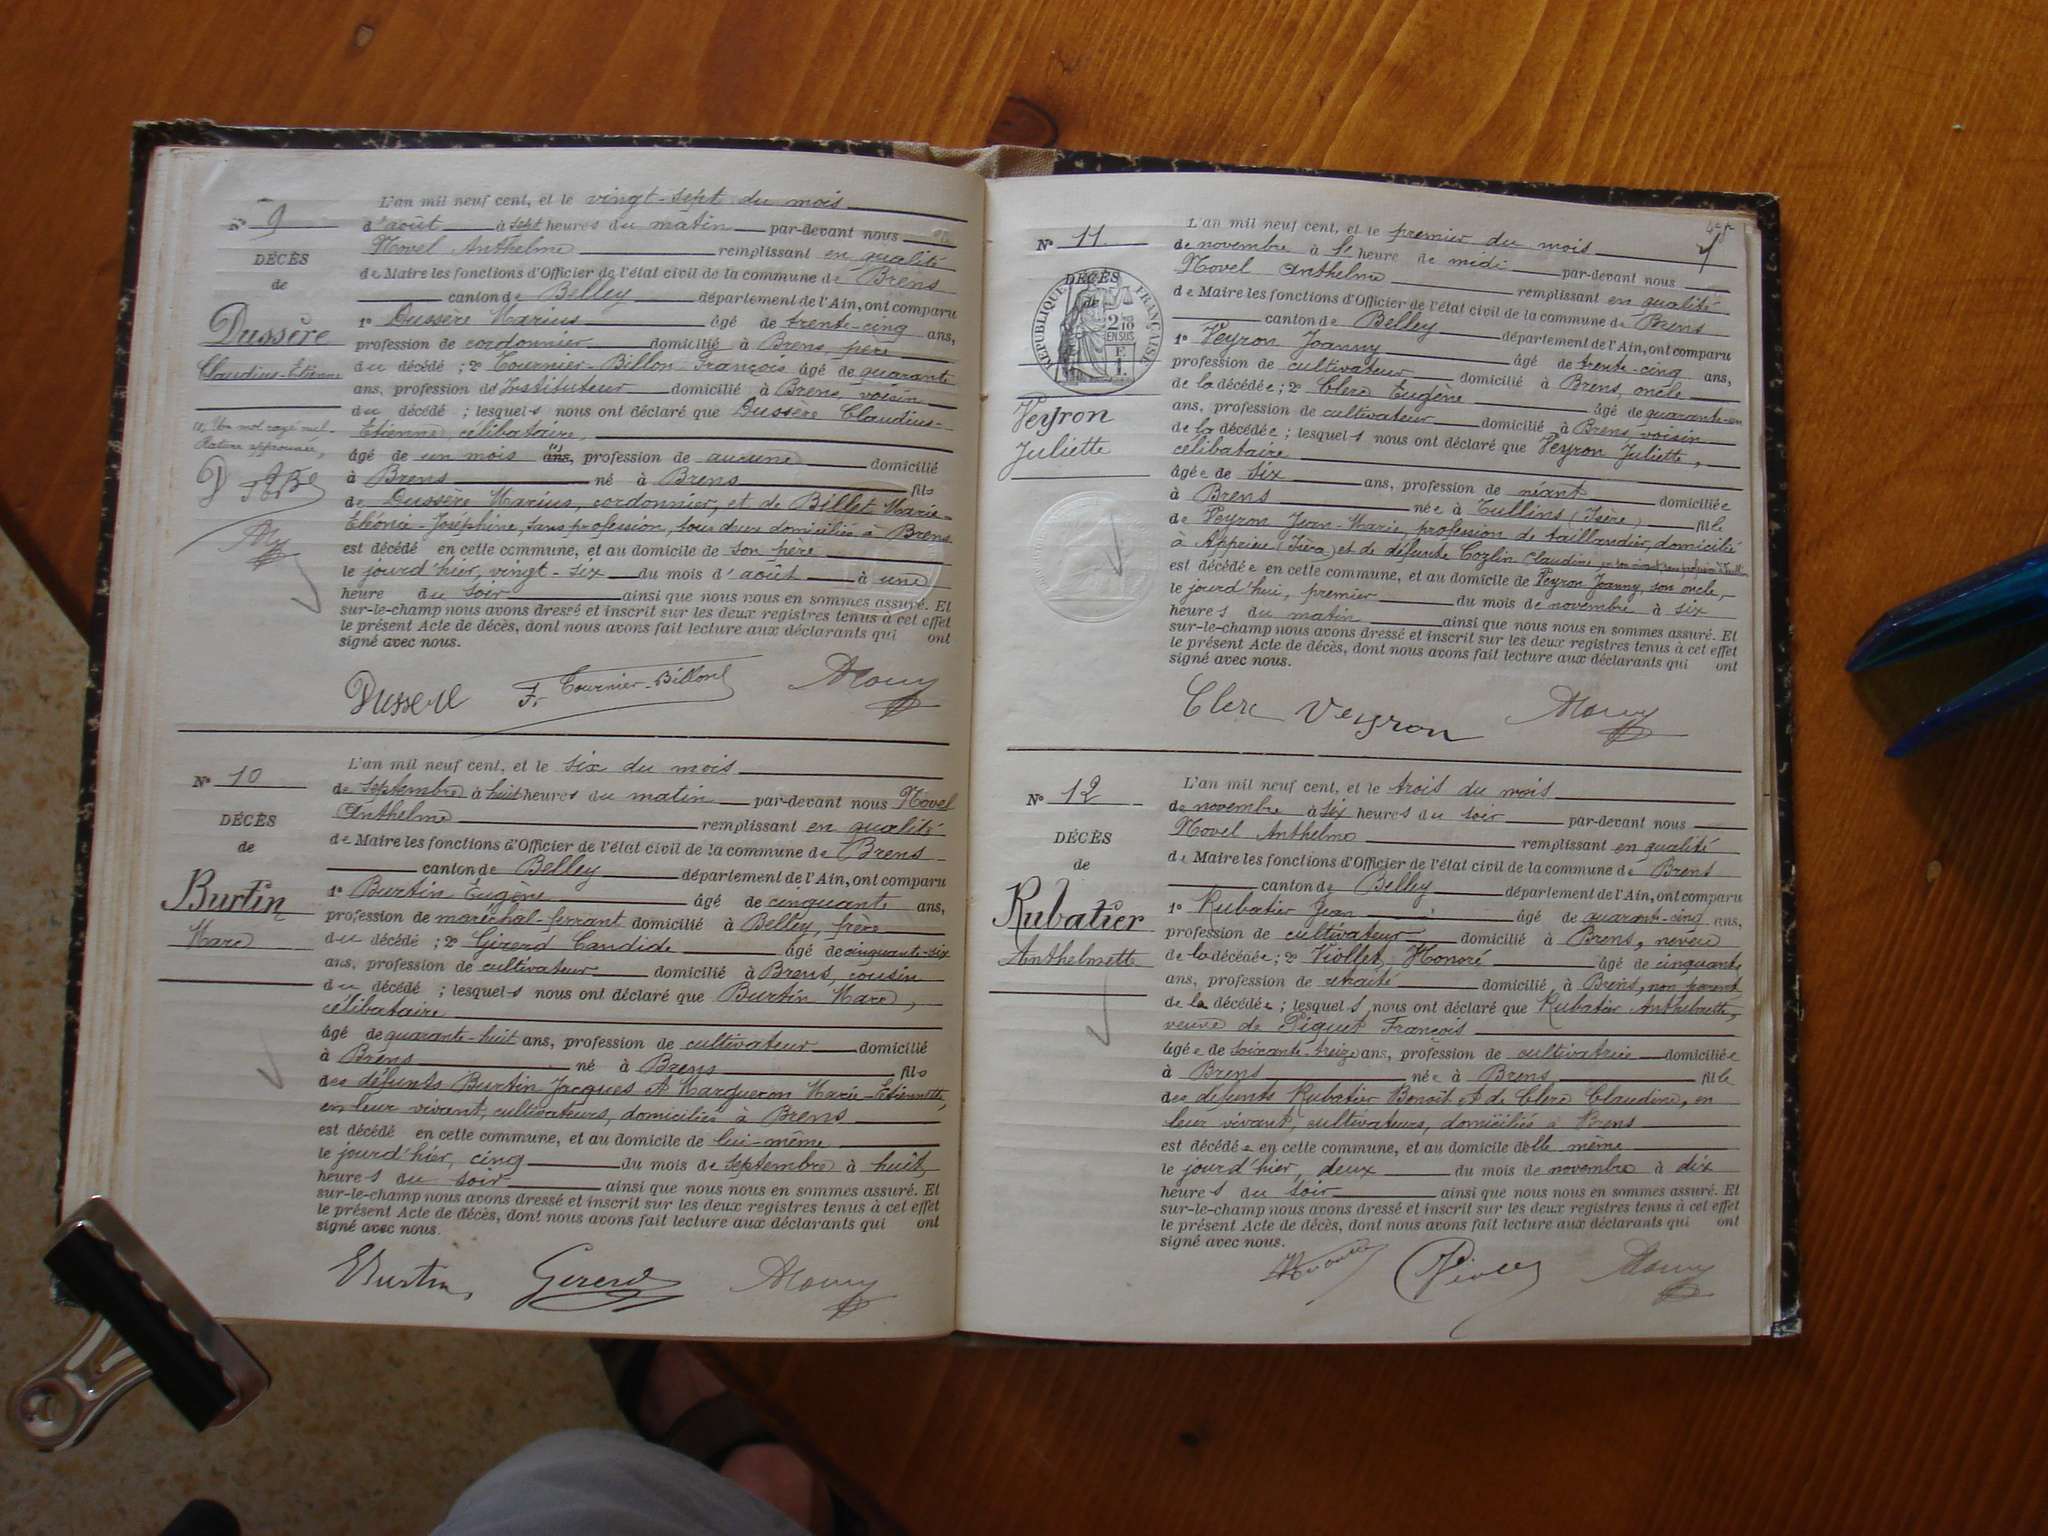 N° 9
DÉCÈS
de
Dussère
Claudius-Etienne
Un mot rayé nul
approuvée,
L'an mil neuf cent, et le vingt-sept du mois
d'août à sept heures du matin par-devant nous
Novel Anthelme remplissant en qualité
de Maire les fonctions d'Officier de l'état civil de la commune de Brens
canton de Belley département de l'Ain, ont comparu
1° Dussère Marius âgé de trente-cinq ans,
profession de cordonnier domicilié à Brens, père
du décédé ; 2° Tournier-Billon François âgé de quarante
ans, profession d'Instituteur domicilié à Brens, voisin
du décédé ; lesquels nous ont déclaré que Dussère Claudius-
Etienne, célibataire,
âgé de un mois ans, profession de aucune domicilié
à Brens né à Brens fils
de Dussère Marius, cordonnier, et de Billet Marie-
Léonie-Joséphine, sans profession, tous deux domiciliés à Brens
est décédé en cette commune, et au domicile de son père
le jourd'hier, vingt-six du mois d'août à une
heure du soir ainsi que nous nous en sommes assuré. Et
sur-le-champ nous avons dressé et inscrit sur les deux registres tenus à cet effet
le présent Acte de décès, dont nous avons fait lecture aux déclarants qui ont
signé avec nous.
Dussere F. Tournier-Billon
N° 10
DÉCÈS
de
Burtin
Marc
L'an mil neuf cent, et le six du mois
de septembre à huit heures du matin par-devant nous Novel
Anthelme remplissant en qualité
de Maire les fonctions d'Officier de l'état civil de la commune de Brens
canton de Belley département de l'Ain, ont comparu
1° Burtin Eugène âgé de cinquante ans,
profession de maréchal-ferrant domicilié à Belley, frère
du décédé ; 2° Gérerd Candide âgé de cinquante-six
ans, profession de cultivateur domicilié à Brens, cousin
du décédé ; lesquels nous ont déclaré que Burtin Marc,
célibataire
âgé de quarante-huit ans, profession de cultivateur domicilié
à Brens né à Brens fils
des défunts Burtin Jacques et Margueron Marie-Etiennette,
en leur vivant, cultivateurs, domiciliés à Brens
est décédé en cette commune, et au domicile de lui-même
le jourd'hier, cinq du mois de septembre à huit
heures du soir ainsi que nous nous en sommes assuré. Et
sur-le-champ nous avons dressé et inscrit sur les deux registres tenus à cet effet
le présent Acte de décès, dont nous avons fait lecture aux déclarants qui ont
signé avec nous.
EBurtin Gererd
N° 11
DÉCÈS
de
RÉPUBLIQUE FRANÇAISE
2/10 EN SUS
Veyron
Juliette
L'an mil neuf cent, et le premier du mois
de novembre à 1e heure de midi par-devant nous
Novel Anthelme remplissant en qualité
de Maire les fonctions d'Officier de l'état civil de la commune de Brens
canton de Belley département de l'Ain, ont comparu
1° Veyron Joanny âgé de trente-cinq ans,
profession de cultivateur domicilié à Brens, oncle
de la décédée ; 2° Clerc Eugène âgé de quarante-un
ans, profession de cultivateur domicilié à Brens voisin
de la décédée ; lesquels nous ont déclaré que Veyron Juliette,
célibataire
âgée de six ans, profession de néant domiciliée
à Brens née à Tullins (Isère) fille
de Veyron Jean-Marie, profession de taillandier, domicilié
à Apprieu (Isère) et de défunte Cozlin Claudine,
est décédée en cette commune, et au domicile de Veyron Joanny, son oncle,
le jourd'hui, premier du mois de novembre à six
heures du matin ainsi que nous nous en sommes assuré. Et
sur-le-champ nous avons dressé et inscrit sur les deux registres tenus à cet effet
le présent Acte de décès, dont nous avons fait lecture aux déclarants qui ont
signé avec nous.
Clerc Veyron
N° 12
DÉCÈS
de
Rubatier
Anthelmette
L'an mil neuf cent, et le trois du mois
de novembre à six heures du soir par-devant nous
Novel Anthelme remplissant en qualité
de Maire les fonctions d'Officier de l'état civil de la commune de Brens
canton de Belley département de l'Ain, ont comparu
1° Rubatier Jean âgé de quarante-cinq ans,
profession de cultivateur domicilié à Brens, neveu
de la décédée ; 2° Viollet Honoré âgé de cinquante
ans, profession de retraité domicilié à Brens, non parent
de la décédée ; lesquels nous ont déclaré que Rubatier Anthelmette,
veuve de Piquet François
âgée de soixante-treize ans, profession de cultivatrice domiciliée
à Brens née à Brens fille
des défunts Rubatier Benoît et de Clerc Claudine, en
leur vivant, cultivateurs, domiciliés à Brens
est décédée en cette commune, et au domicile d'elle même
le jourd'hier, deux du mois de novembre à dix
heures du soir ainsi que nous nous en sommes assuré. Et
sur-le-champ nous avons dressé et inscrit sur les deux registres tenus à cet effet
le présent Acte de décès, dont nous avons fait lecture aux déclarants qui ont
signé avec nous.